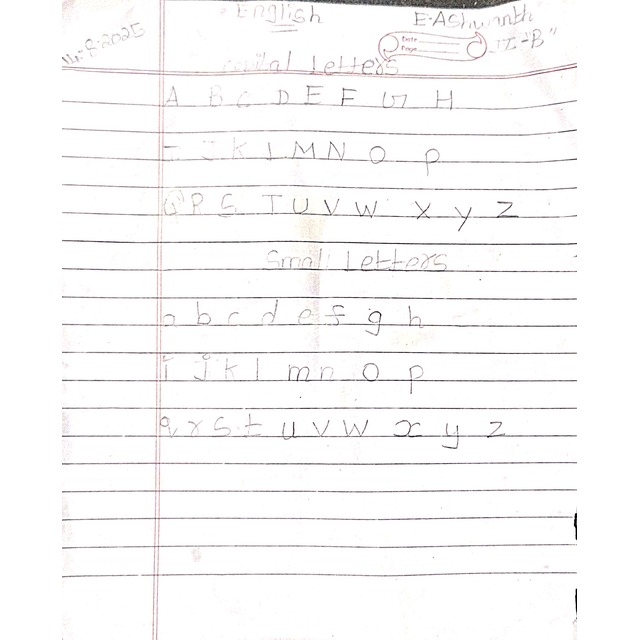 English
E.Ashwanth
8.2025
Date
Page
II-"B"
Capital Letters
A B C D E F G H
I J K L M N O P
Q R S T U V W X Y Z
Small Letters
a b c d e f g h
i j k l m n o p
q r s t u v w x y z